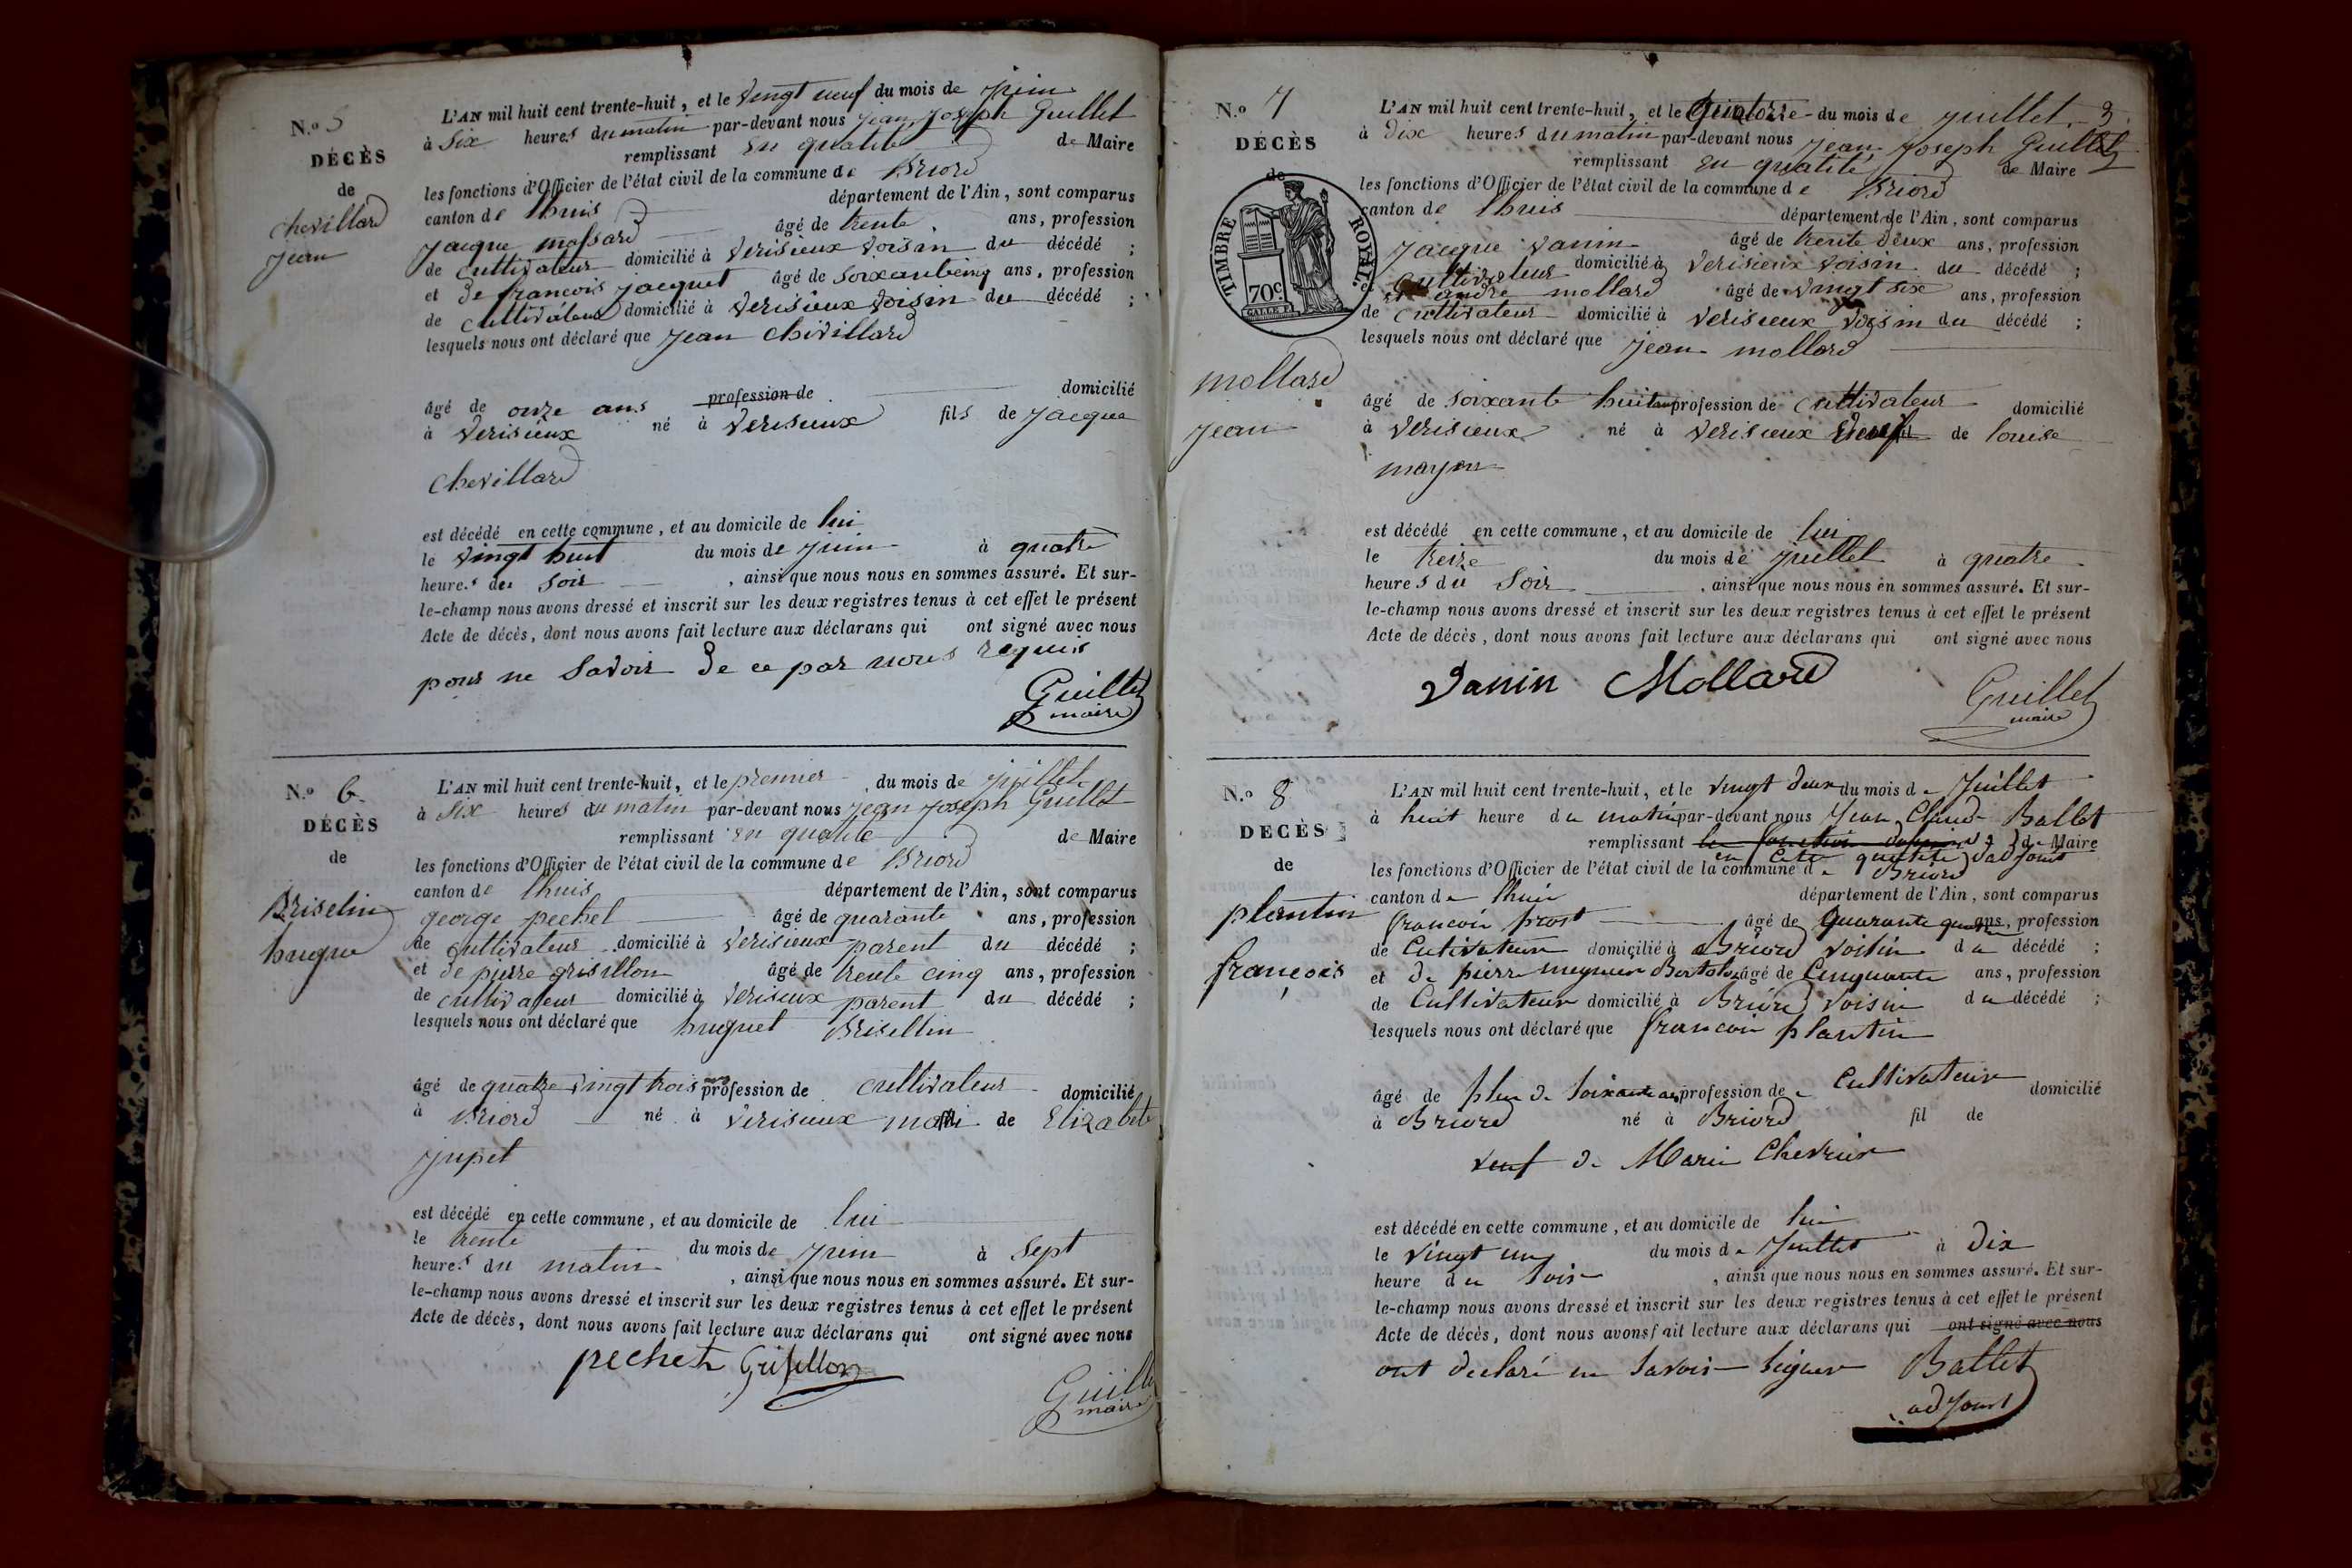 N.o 5
DÉCÈS
de
chevillard
jean
L'AN mil huit cent trente-huit, et le vingt neuf du mois de juin
à six heures du matin par-devant nous jean joseph Guillet
remplissant en qualité de Maire
les fonctions d'Officier de l'état civil de la commune de Briord
canton de lhuis département de l'Ain, sont comparus
jacque massard âgé de trente ans, profession
de cultivateur domicilié à verisieux voisin du décédé ;
et de francois jacquet âgé de soixantecinq ans, profession
de cultivateur domicilié à verisieux voisin du décédé ;
lesquels nous ont déclaré que jean chevillard
âgé de onze ans profession de domicilié
à verisieux né à verisieux fils de jacque
chevillard
est décédé en cette commune, et au domicile de lui
le vingt huit du mois de juin à quatre
heures du soir , ainsi que nous nous en sommes assuré. Et sur-
le-champ nous avons dressé et inscrit sur les deux registres tenus à cet effet le présent
Acte de décès, dont nous avons fait lecture aux déclarans qui ont signé avec nous
pour ne savoir de ce par nous requis
Guillet
maire
N.o 6
DÉCÈS
de
Briselin
hugue
L'AN mil huit cent trente-huit, et le premier du mois de juillet
à six heures du matin par-devant nous jean joseph Guillet
remplissant en qualité de Maire
les fonctions d'Officier de l'état civil de la commune de Briord
canton de lhuis département de l'Ain, sont comparus
george pechet âgé de quarante ans, profession
de cultivateur domicilié à verisieux parent du décédé ;
et de pierre grisillon âgé de trente cinq ans, profession
de cultivateur domicilié à verisieux parent du décédé ;
lesquels nous ont déclaré que huguet Brisellin
âgé de quatre vingt trois ans profession de cultivateur domicilié
à Briord né à verisieux mari de Elizabete
jupet
est décédé en cette commune, et au domicile de lui
le trente du mois de juin à sept
heures du matin , ainsi que nous nous en sommes assuré. Et sur-
le-champ nous avons dressé et inscrit sur les deux registres tenus à cet effet le présent
Acte de décès, dont nous avons fait lecture aux déclarans qui ont signé avec nous
pechet Grisillon
Guillet
maire
N.o 7
DÉCÈS
de
TIMBRE ROYAL.
70c.
mollard
jean
L'AN mil huit cent trente-huit, et le quatorze du mois de juillet 3.
à dix heures du matin par-devant nous jean joseph Guillet
remplissant en qualité de Maire
les fonctions d'Officier de l'état civil de la commune de Briord
canton de lhuis département de l'Ain, sont comparus
jacque vanin âgé de trente deux ans, profession
cultivateur domicilié à verisieux voisin du décédé ;
et andré mollard âgé de vingt six ans, profession
de cultivateur domicilié à verisieux voisin du décédé ;
lesquels nous ont déclaré que jean mollard
âgé de soixante huit ans profession de cultivateur domicilié
à verisieux né à verisieux veuf de louise
est décédé en cette commune, et au domicile de lui
le treize du mois de juillet à quatre
heures du soir , ainsi que nous nous en sommes assuré. Et sur-
le-champ nous avons dressé et inscrit sur les deux registres tenus à cet effet le présent
Acte de décès, dont nous avons fait lecture aux déclarans qui ont signé avec nous
Vanin Mollard
Guillet
maire
N.o 8
DÉCÈS
de
plantin
françois
L'AN mil huit cent trente-huit, et le vingt deux du mois de Juillet
à huit heure du matin par-devant nous Jean Claude Ballet
remplissant de Maire
en cette qualité d'adjoint
les fonctions d'Officier de l'état civil de la commune de Briord
canton de lhuis département de l'Ain, sont comparus
francois prost âgé de quarante quatre ans, profession
de Cultivateur domicilié à Briord voisin du décédé ;
et de pierre meynier Bertolo âgé de Cinquante ans, profession
de Cultivateur domicilié à Briord voisin du décédé ;
lesquels nous ont déclaré que francois plantin
âgé de plus de soixante ans profession de Cultivateur domicilié
à Briord né à Briord fil de
veuf de Marie Chevrier
est décédé en cette commune, et au domicile de lui
le vingt un du mois de Juillet à Dix
heure du soir , ainsi que nous nous en sommes assuré. Et sur-
le-champ nous avons dressé et inscrit sur les deux registres tenus à cet effet le présent
Acte de décès, dont nous avons fait lecture aux déclarans qui ont signé avec nous
ont declaré ne savoir signer Ballet
adjoint